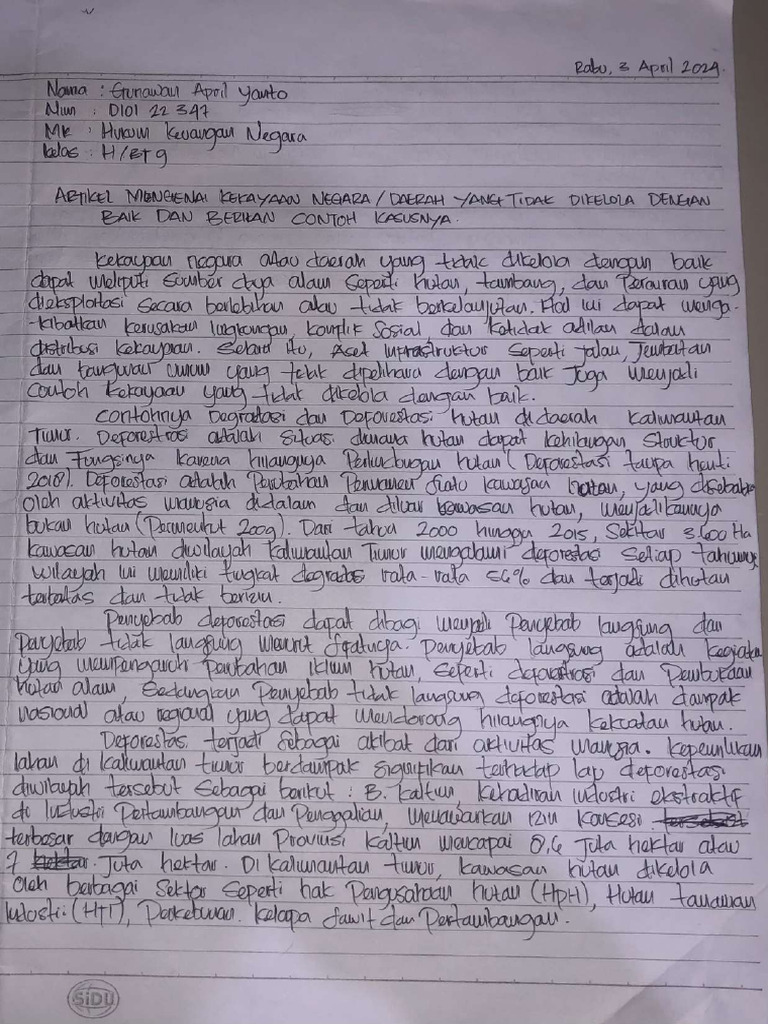 Rabu, 3 April 2024.
Nama : Gunawan April Yanto
Nim : D101 22 347
Mk : Hukum Keuangan Negara
Kelas : H/BT 9
ARTIKEL MENGENAI KEKAYAAN NEGARA / DAERAH YANG TIDAK DIKELOLA DENGAN
BAIK DAN BERIKAN CONTOH KASUSNYA.
Kekayaan negara atau daerah yang tidak dikelola dengan baik
dapat meliputi sumber daya alam seperti hutan, tambang, dan perairan yang
dieksploitasi secara berlebihan atau tidak berkelanjutan. Hal ini dapat menga-
-kibatkan kerusakan lingkungan, konflik sosial dan ketidak adilan dalam
distribusi kekayaan. Selain itu, Aset infrastruktur seperti jalan, jembatan
dan bangunan umum yang tidak dipelihara dengan baik juga menjadi
contoh kekayaan yang tidak dikelola dengan baik.
Contohnya Degradasi dan Deforestasi hutan di daerah Kalimantan
Timur. Deforestasi adalah situasi dimana hutan dapat kehilangan struktur
dan fungsinya karena hilangnya perlindungan hutan (Deforestasi tanpa henti
2018). Deforestasi adalah perubahan permanen suatu kawasan hutan, yang disebabkan
oleh aktivitas manusia didalam dan diluar kawasan hutan, menjadikannya
bukan hutan (Permenhut 2009). Dari tahun 2000 hingga 2015, Sekitar 3.600 Ha
kawasan hutan diwilayah Kalimantan Timur mengalami deforestasi setiap tahunnya
wilayah ini memiliki tingkat degradasi rata-rata 54% dan terjadi dihutan
terbatas dan tidak berizin.
Penyebab deforestasi dapat dibagi menjadi penyebab langsung dan
penyebab tidak langsung menurut sifatnya. Penyebab langsung adalah kegiatan
yang mempengaruhi perubahan iklim hutan, seperti deforestasi dan pembukaan
hutan alam, sedangkan penyebab tidak langsung deforestasi adalah dampak
nasional atau regional yang dapat mendorong hilangnya kekuatan hutan.
Deforestasi terjadi sebagai akibat dari aktivitas manusia. Kepemilikan
lahan di Kalimantan timur berdampak signifikan terhadap lap deforestasi
diwilayah tersebut sebagai berikut : B. Kaltim kehadiran industri ekstraktif
di industri pertambangan dan penggalian, menawarkan izin konsesi
terbesar dengan luas lahan Provinsi Kaltim mencapai 8,4 Juta hektar atau
7 Juta hektar. Di Kalimantan timur, kawasan hutan dikelola
oleh berbagai sektor seperti hak pengusahaan hutan (HPH), Hutan tanaman
industri (HTI), Perkebunan kelapa sawit dan Pertambangan.
SiDU